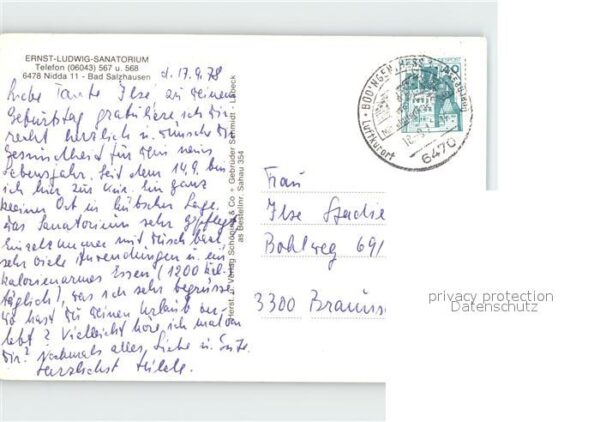 ERNST-LUDWIG-SANATORIUM
Telefon (06043) 567 u. 568
6478 Nidda 11 - Bad Salzhausen
d. 17.9.78
Liebe Tante Ilse, zu deinem
Geburtstag gratuliere ich dir
recht herzlich u. wünsche dir
Gesundheit für dein neues
Lebensjahr. Seit dem 14.9. bin
ich hier zur Kur. Ein ganz
kleiner Ort in hübscher Lage.
Das Sanatorium sehr gepflegt
Einzelzimmer mit Dusche
sehr viele Anwendungen u. ein
kalorienarmes Essen (1200 kal.
täglich), was ich sehr begrüsse.
Wo hast du deinen Urlaub ver-
lebt? Vielleicht höre ich mal von
dir? Nochmals alles Liebe u. Gute.
Herzlichst
Herst. u. Verlag Schöning & Co + Gebrüder Schmidt - Lübeck
as Bestellnr. Sahau 354
BÜDINGEN, HESS
Luftkurort
6470
Frau
Ilse
Bohlweg 69/
3300
privacy protection
Datenschutz